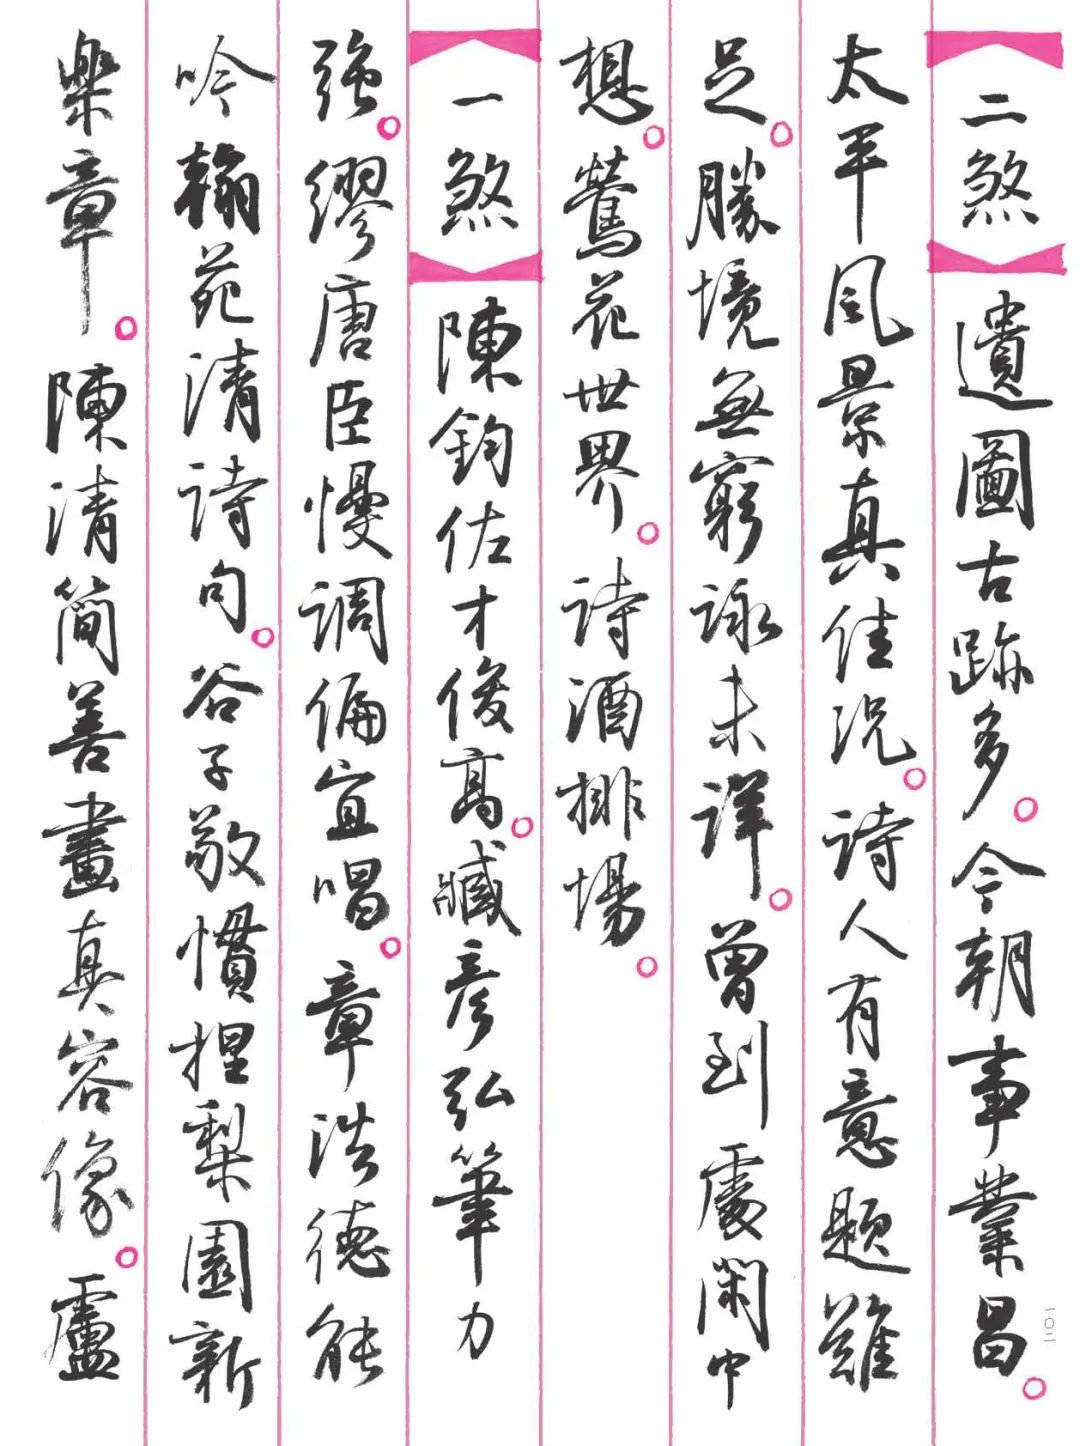 【二煞】遺圖古跡多。今朝事業昌。
太平風景真佳況。詩人有意題難
足。勝境無窮詠未詳。曾到處閑中
想。鶯花世界。詩酒排場。
【一煞】陳鈞佐才俊高。臧彥弘筆力
強。繆唐臣慢調偏宜唱。章浩德能
吟翰苑清詩句。谷子敬慣捏梨園新
樂章。陳清簡善畫真容像。盧
一〇二